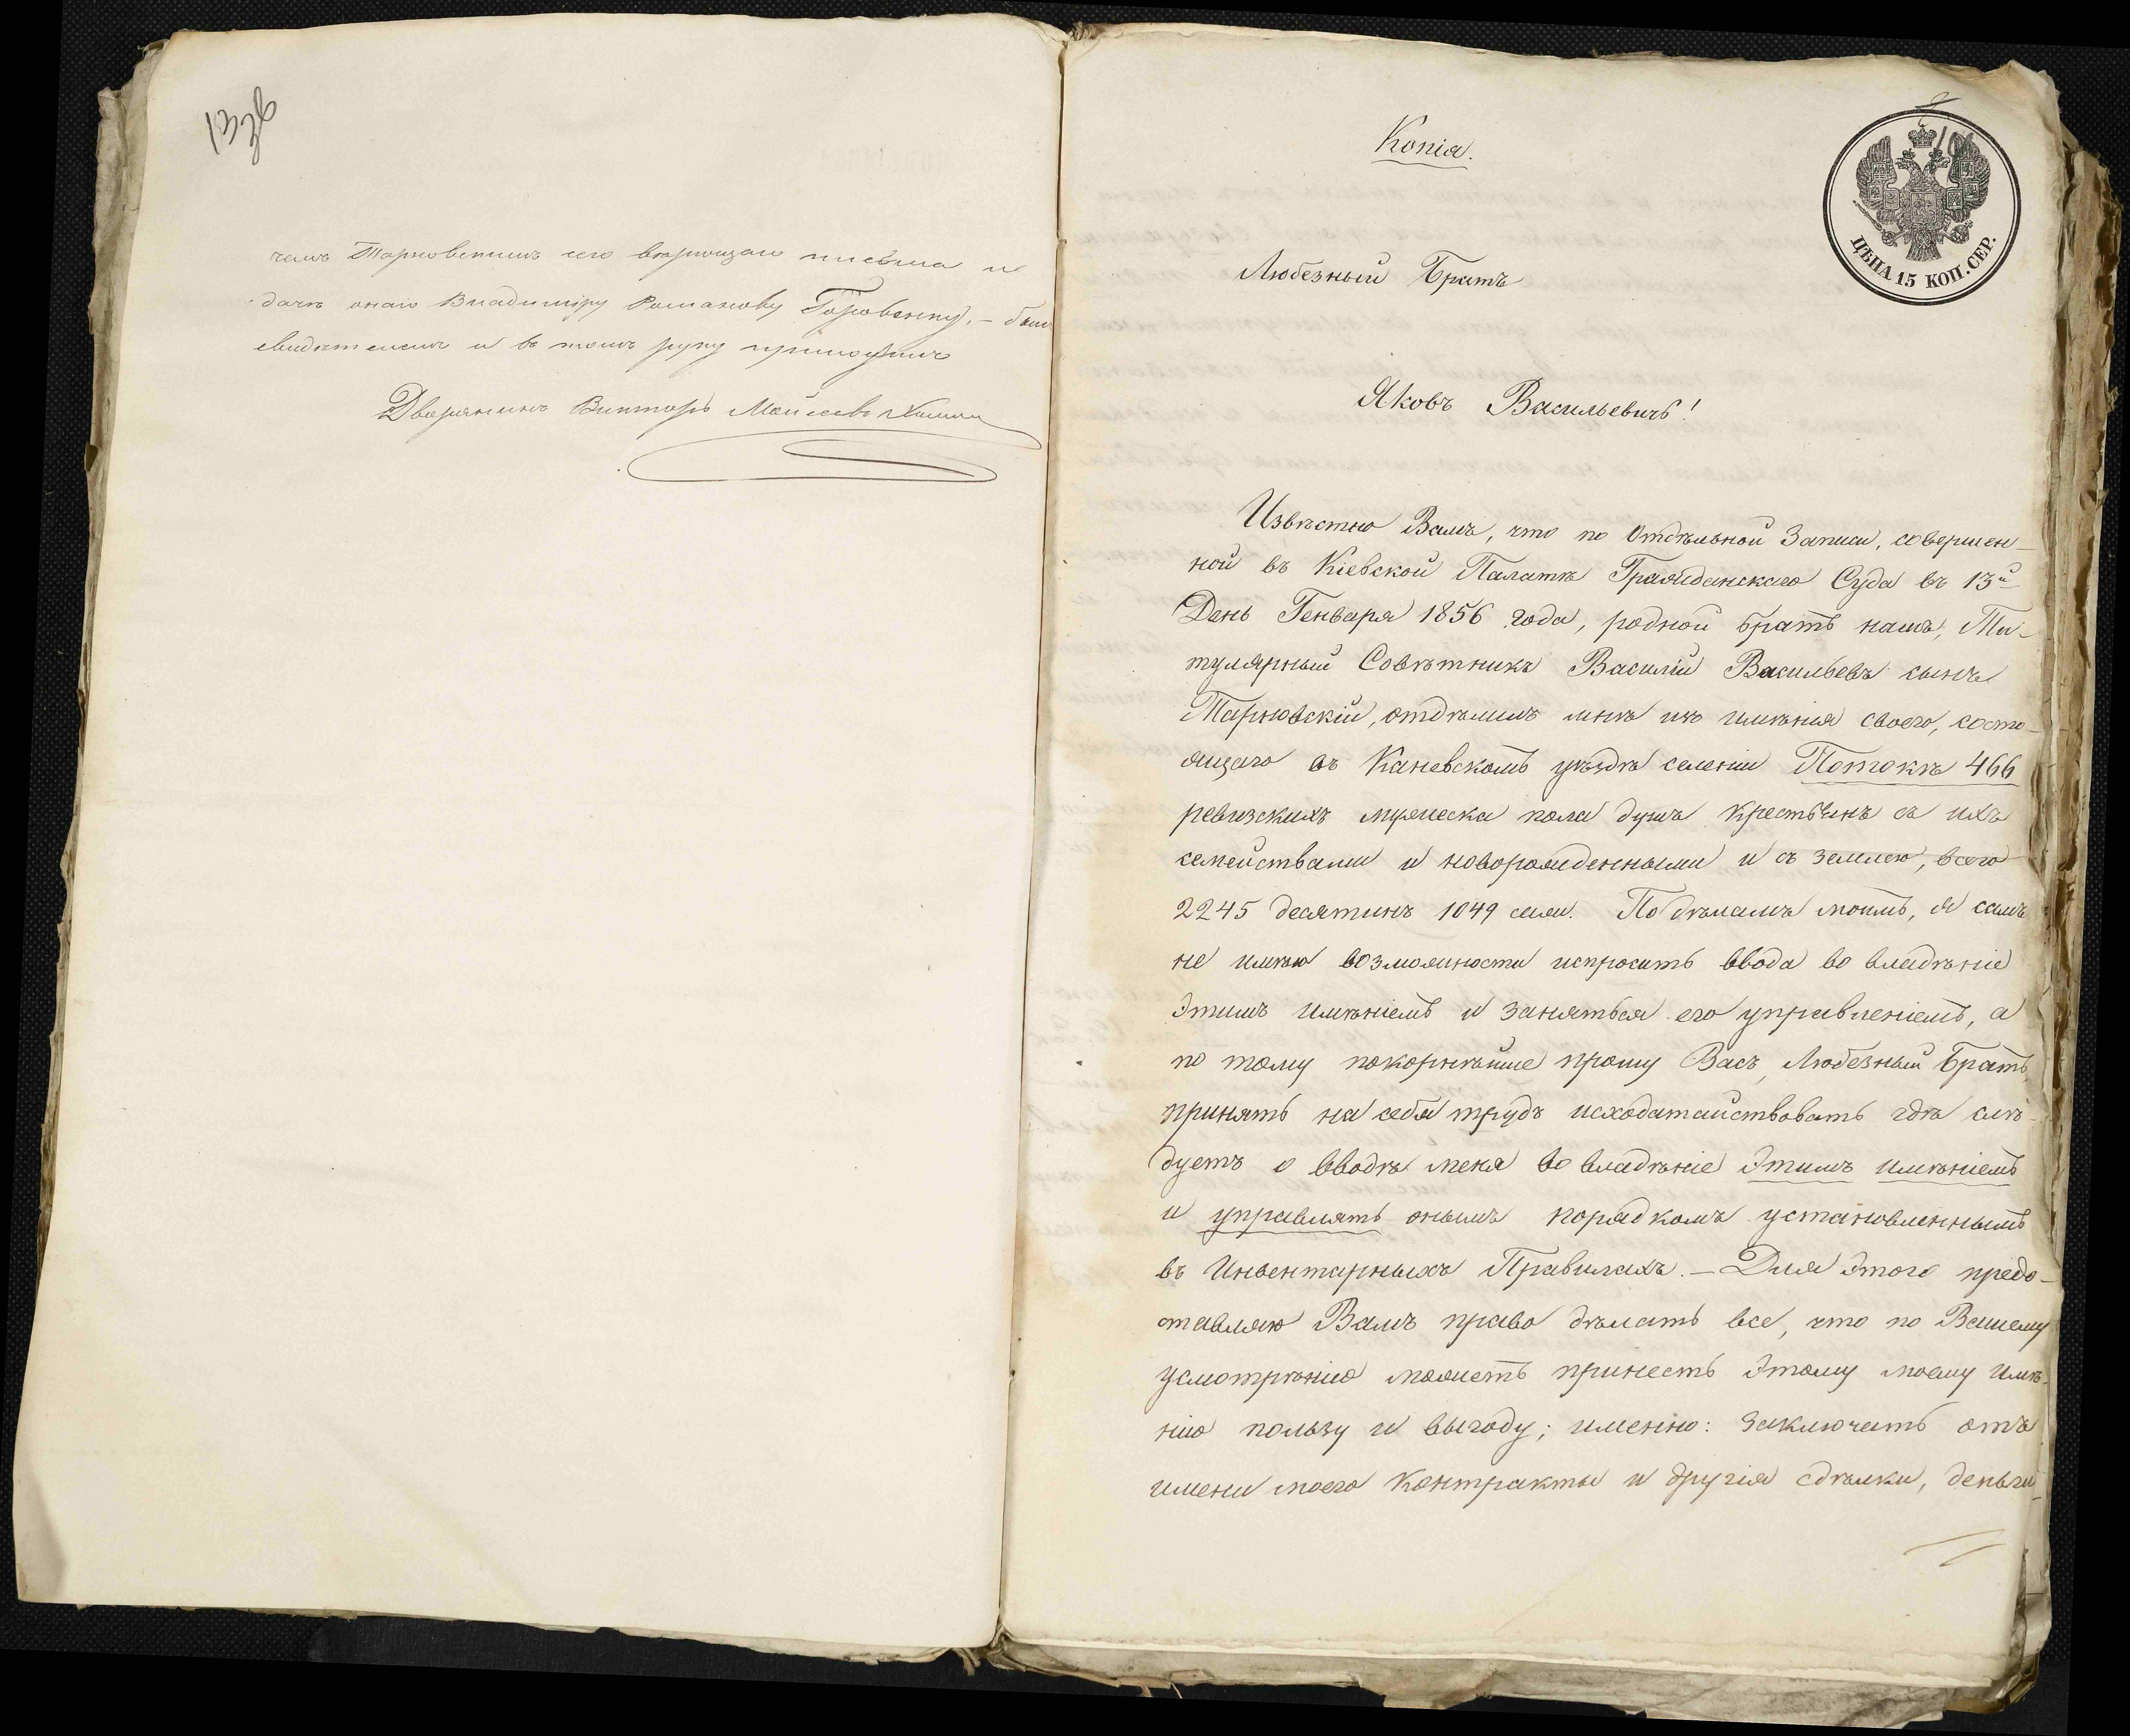 13 об
чемъ Тарновскимъ сего вѣрющаго письма и
дачѣ онаго Владиміру Романову - былъ
свидѣтелемъ и въ томъ руку приложилъ
Дворянинъ Викторъ Мойсеевъ
Копія.
ЦѢНА 15 КОП. СЕР.
Любезный Братъ
Яковъ Васильевичъ!
Извѣстно Вамъ, что по Отдѣльной Записи, совершен-
ной въ Кіевской Палатѣ Гражданскаго Суда въ 13й
День Генваря 1856 года, родной братъ нашъ, Ти-
тулярный Совѣтникъ Василій Васильевъ сынъ
Тарновскій, отдѣлилъ мнѣ изъ имѣнія своего, состо-
ящаго въ Каневскомъ уѣздѣ селеніи Потокѣ 466
ревизскихъ мужеска пола душъ крестьянъ съ ихъ
семействами и новорожденными и съ землею, всего
2245 десятинъ 1049 саж. По дѣламъ моимъ, я самъ
не имѣю возможности испросить ввода во владѣніе
этимъ имѣніемъ и заняться его управленіемъ, а
по тому покорнѣйше прошу Васъ, Любезный Братъ,
принять на себя трудъ исходатайствовать гдѣ слѣ-
дуетъ о вводѣ меня во владѣніе этимъ имѣніемъ
и управлять онымъ порядкомъ установленнымъ
въ Инвентарныхъ Правилахъ. - Для этого предо-
ставляю Вамъ право дѣлать все, что по Вашему
усмотрѣнію можетъ принесть этому моему имѣ-
нію пользу и выгоду; именно: заключать отъ
имени моего контракты и другія сдѣлки, деньги